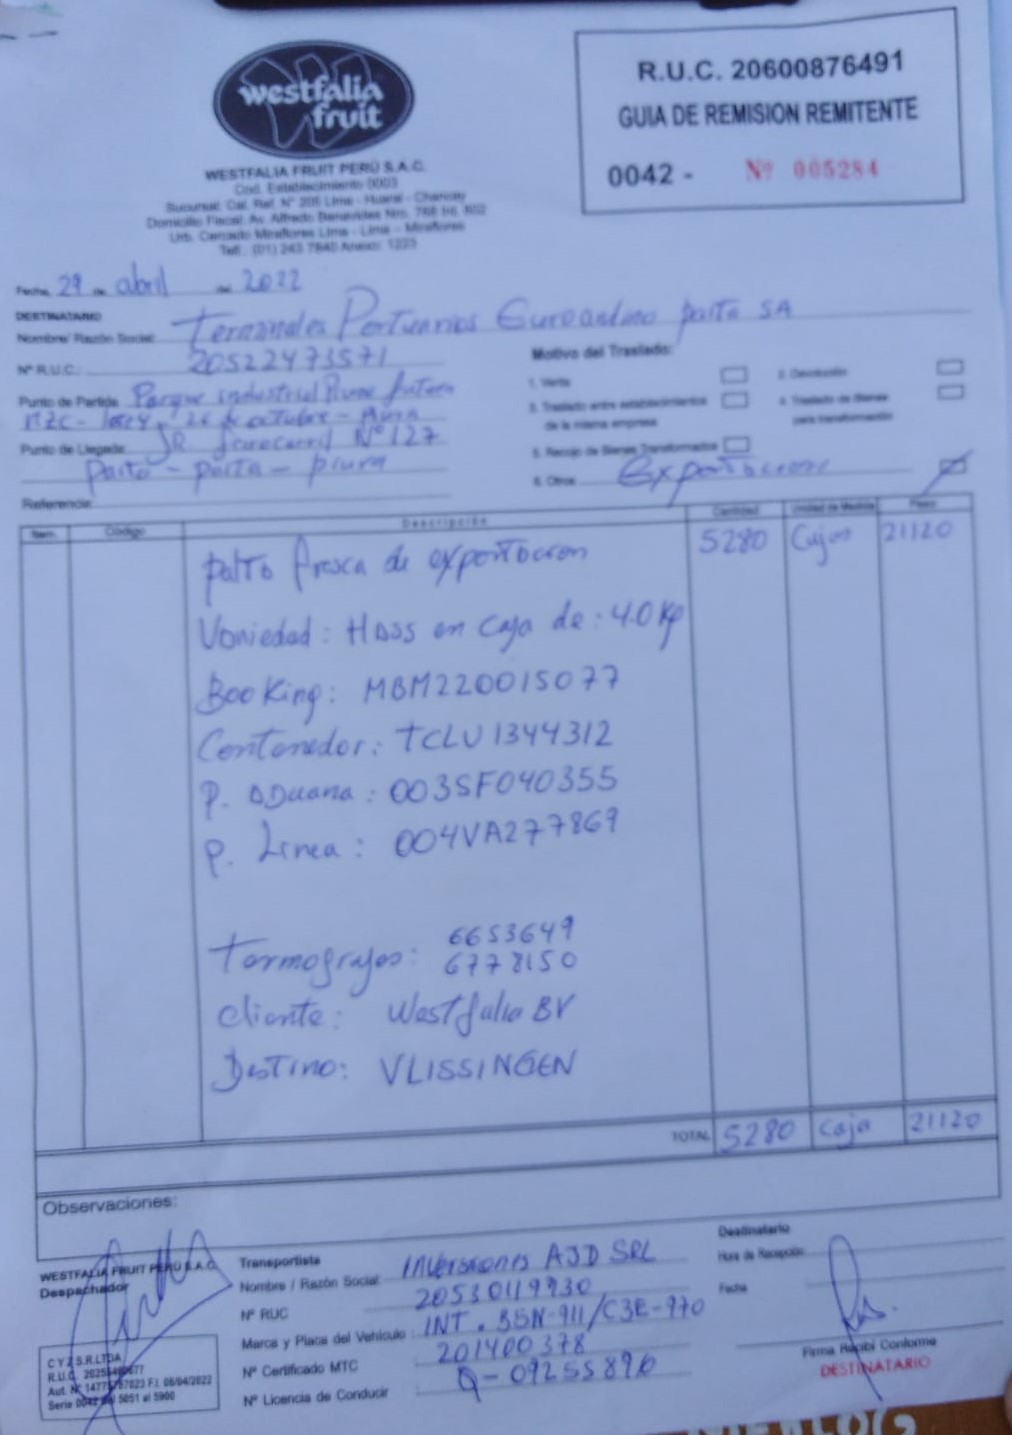 westfalia
fruit
WESTFALIA FRUIT PERÚ S.A.C.
Cod. Establecimiento 0003
Sucursal: Cal. Ref. N° 205 Lima - Huaral - Chancay
Domicilio Fiscal: Av. Alfredo Benavides Nro. 768 Int. 802
Urb. Cercado Miraflores Lima - Lima - Miraflores
Telf.: (01) 243 7840 Anexo: 1223
R.U.C. 20600876491
GUIA DE REMISION REMITENTE
0042 - Nº 005284
Fecha, 29 de abril del 2022
DESTINATARIO
Nombre/ Razón Social: Terminales Portuarios Euroandino paita SA
Nº R.U.C.: 20522473571
Punto de Partida: Parque industrial Piura futura
MZC - 26 de octubre - Piura
Punto de Llegada: JR ferrocarril Nº 127
Paita - paita - piura
Referencia:
Motivo del Traslado:
1. Venta
2. Devolución
3. Traslado entre establecimientos
de la misma empresa
4. Traslado de Bienes
para transformación
5. Recojo de Bienes Transformados
6. Otros Exportacion
Item. Código Descripción Cantidad Unidad de Medida Peso
palta fresca de exportacion 5280 Cajas 21120
Variedad: HASS en caja de: 4.0 Kg
Booking: MBM220015077
Contenedor: TCLU1344312
P. ADuana: 003SF040355
P. Linea: 004VA277869
Termografos: 6653649
6778150
Cliente: Westfalia BV
Destino: VLISSINGEN
TOTAL 5280 Caja 21120
Observaciones:
WESTFALIA FRUIT PERÚ S.A.C.
Despachador
C Y Z S.R.LTDA
R.U.C.
Aut. N° F.I. 08/04/2022
Serie 0042 del 5051 al 5900
Transportista
Nombre / Razón Social: INVERSIONES AJD SRL
Nº RUC 20530119930
Marca y Placa del Vehículo: INT. BSN-911/C3E-970
Nº Certificado MTC 201400378
Nº Licencia de Conducir Q-09255896
Destinatario
Hora de Recepción:
Fecha
Firma Recibí Conforme
DESTINATARIO